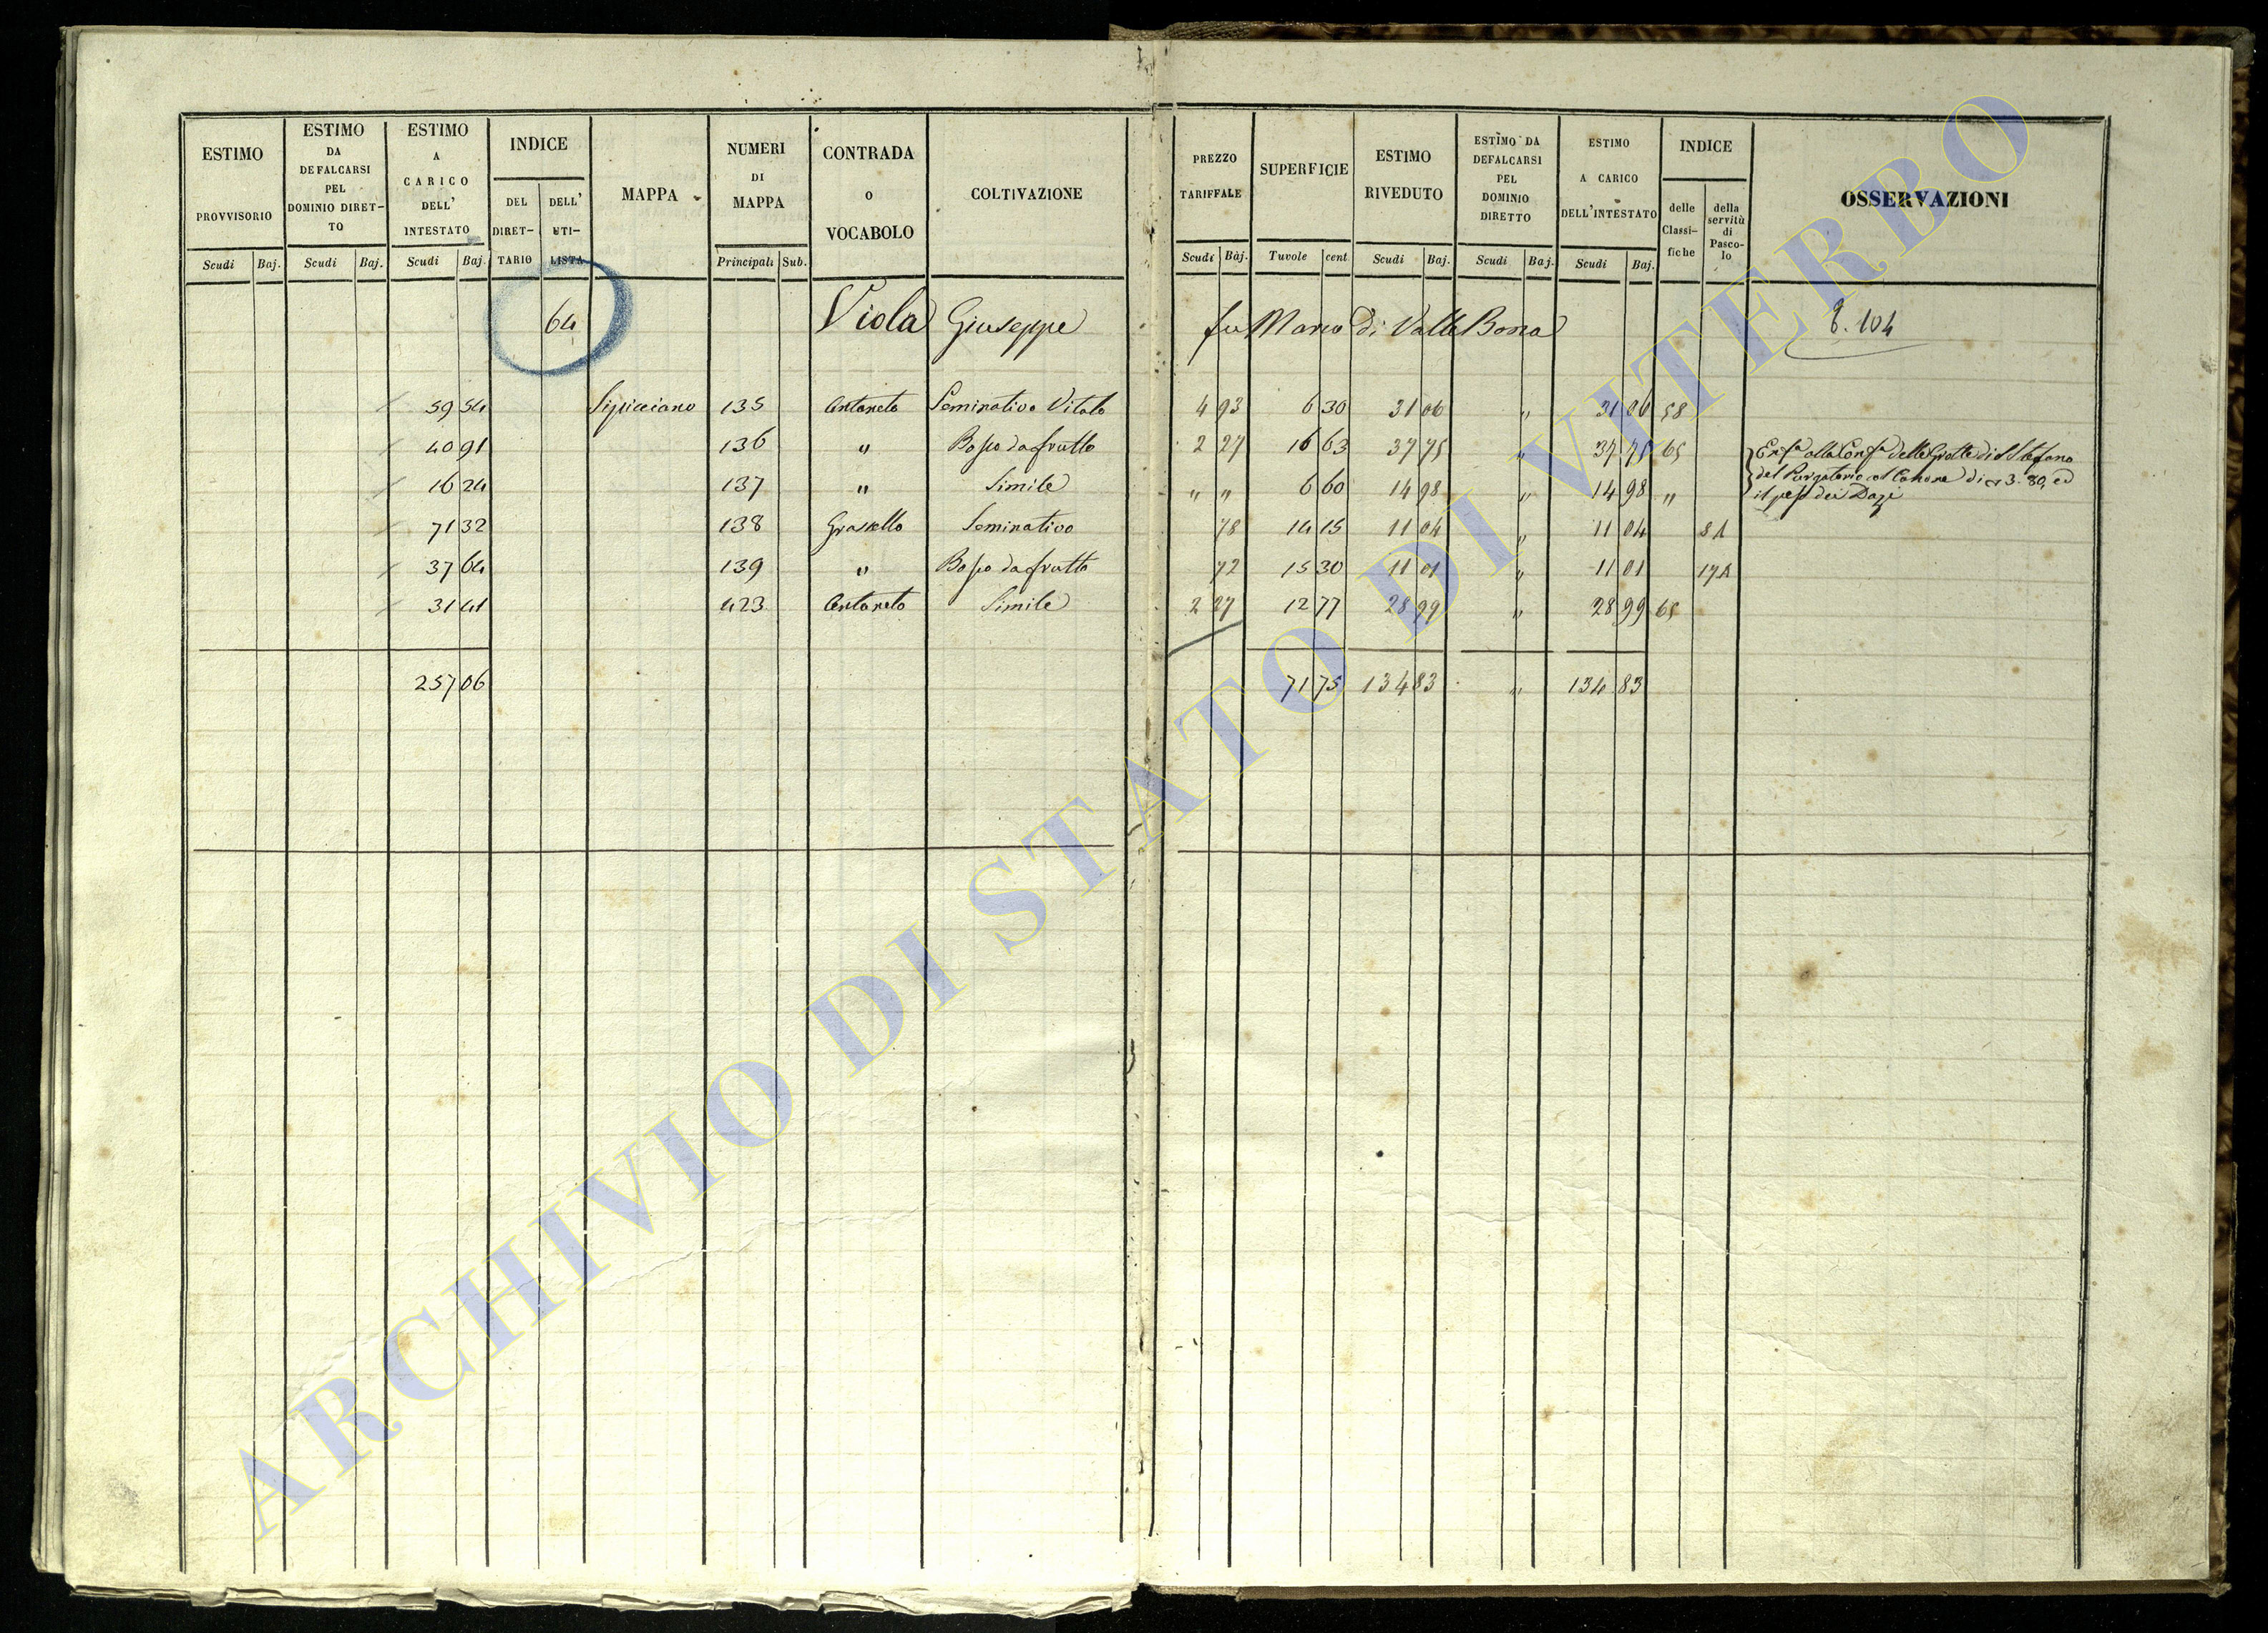 ESTIMO PROVVISORIO Scudi Baj.
ESTIMO DA DEFALCARSI PEL DOMINIO DIRET-TO Scudi Baj.
ESTIMO A CARICO DELL' INTESTATO Scudi Baj.
INDICE DEL DIRET-TARIO DELL' UTI-LISTA
MAPPA
NUMERI DI MAPPA Principali Sub.
CONTRADA O VOCABOLO
COLTIVAZIONE
PREZZO TARIFFALE Scudi Baj.
SUPERFICIE Tavole cent.
ESTIMO RIVEDUTO Scudi Baj.
ESTIMO DA DEFALCARSI PEL DOMINIO DIRETTO Scudi Baj.
ESTIMO A CARICO DELL'INTESTATO Scudi Baj.
INDICE delle Classi-fiche della servitù di Pasco-lo
OSSERVAZIONI
64 Viola Giuseppe fu Marco di Valle Bona 104
59 54 Sipicciano 135 Antaneto Seminativo Vitato 4 93 6 30 31 06 " 31 06 58
40 91 136 " Bosco da frutto 2 27 16 63 37 75 " 37 75 65
16 24 137 " Simile " " 6 60 14 98 " 14 98 "
alla delle Grotte di S Stefano
del Purgatorio col Canone di 3. 80, ed
il peso dei Dazi
71 32 138 Seminativo 78 14 15 11 04 " 11 04
37 64 139 " Bosco da frutto 72 15 30 11 01 " 11 01
31 41 423 Antaneto Simile 2 27 12 77 28 99 " 28 99 65
257 06 71 75 134 83 " 134 83
ARCHIVIO DI STATO DI VITERBO